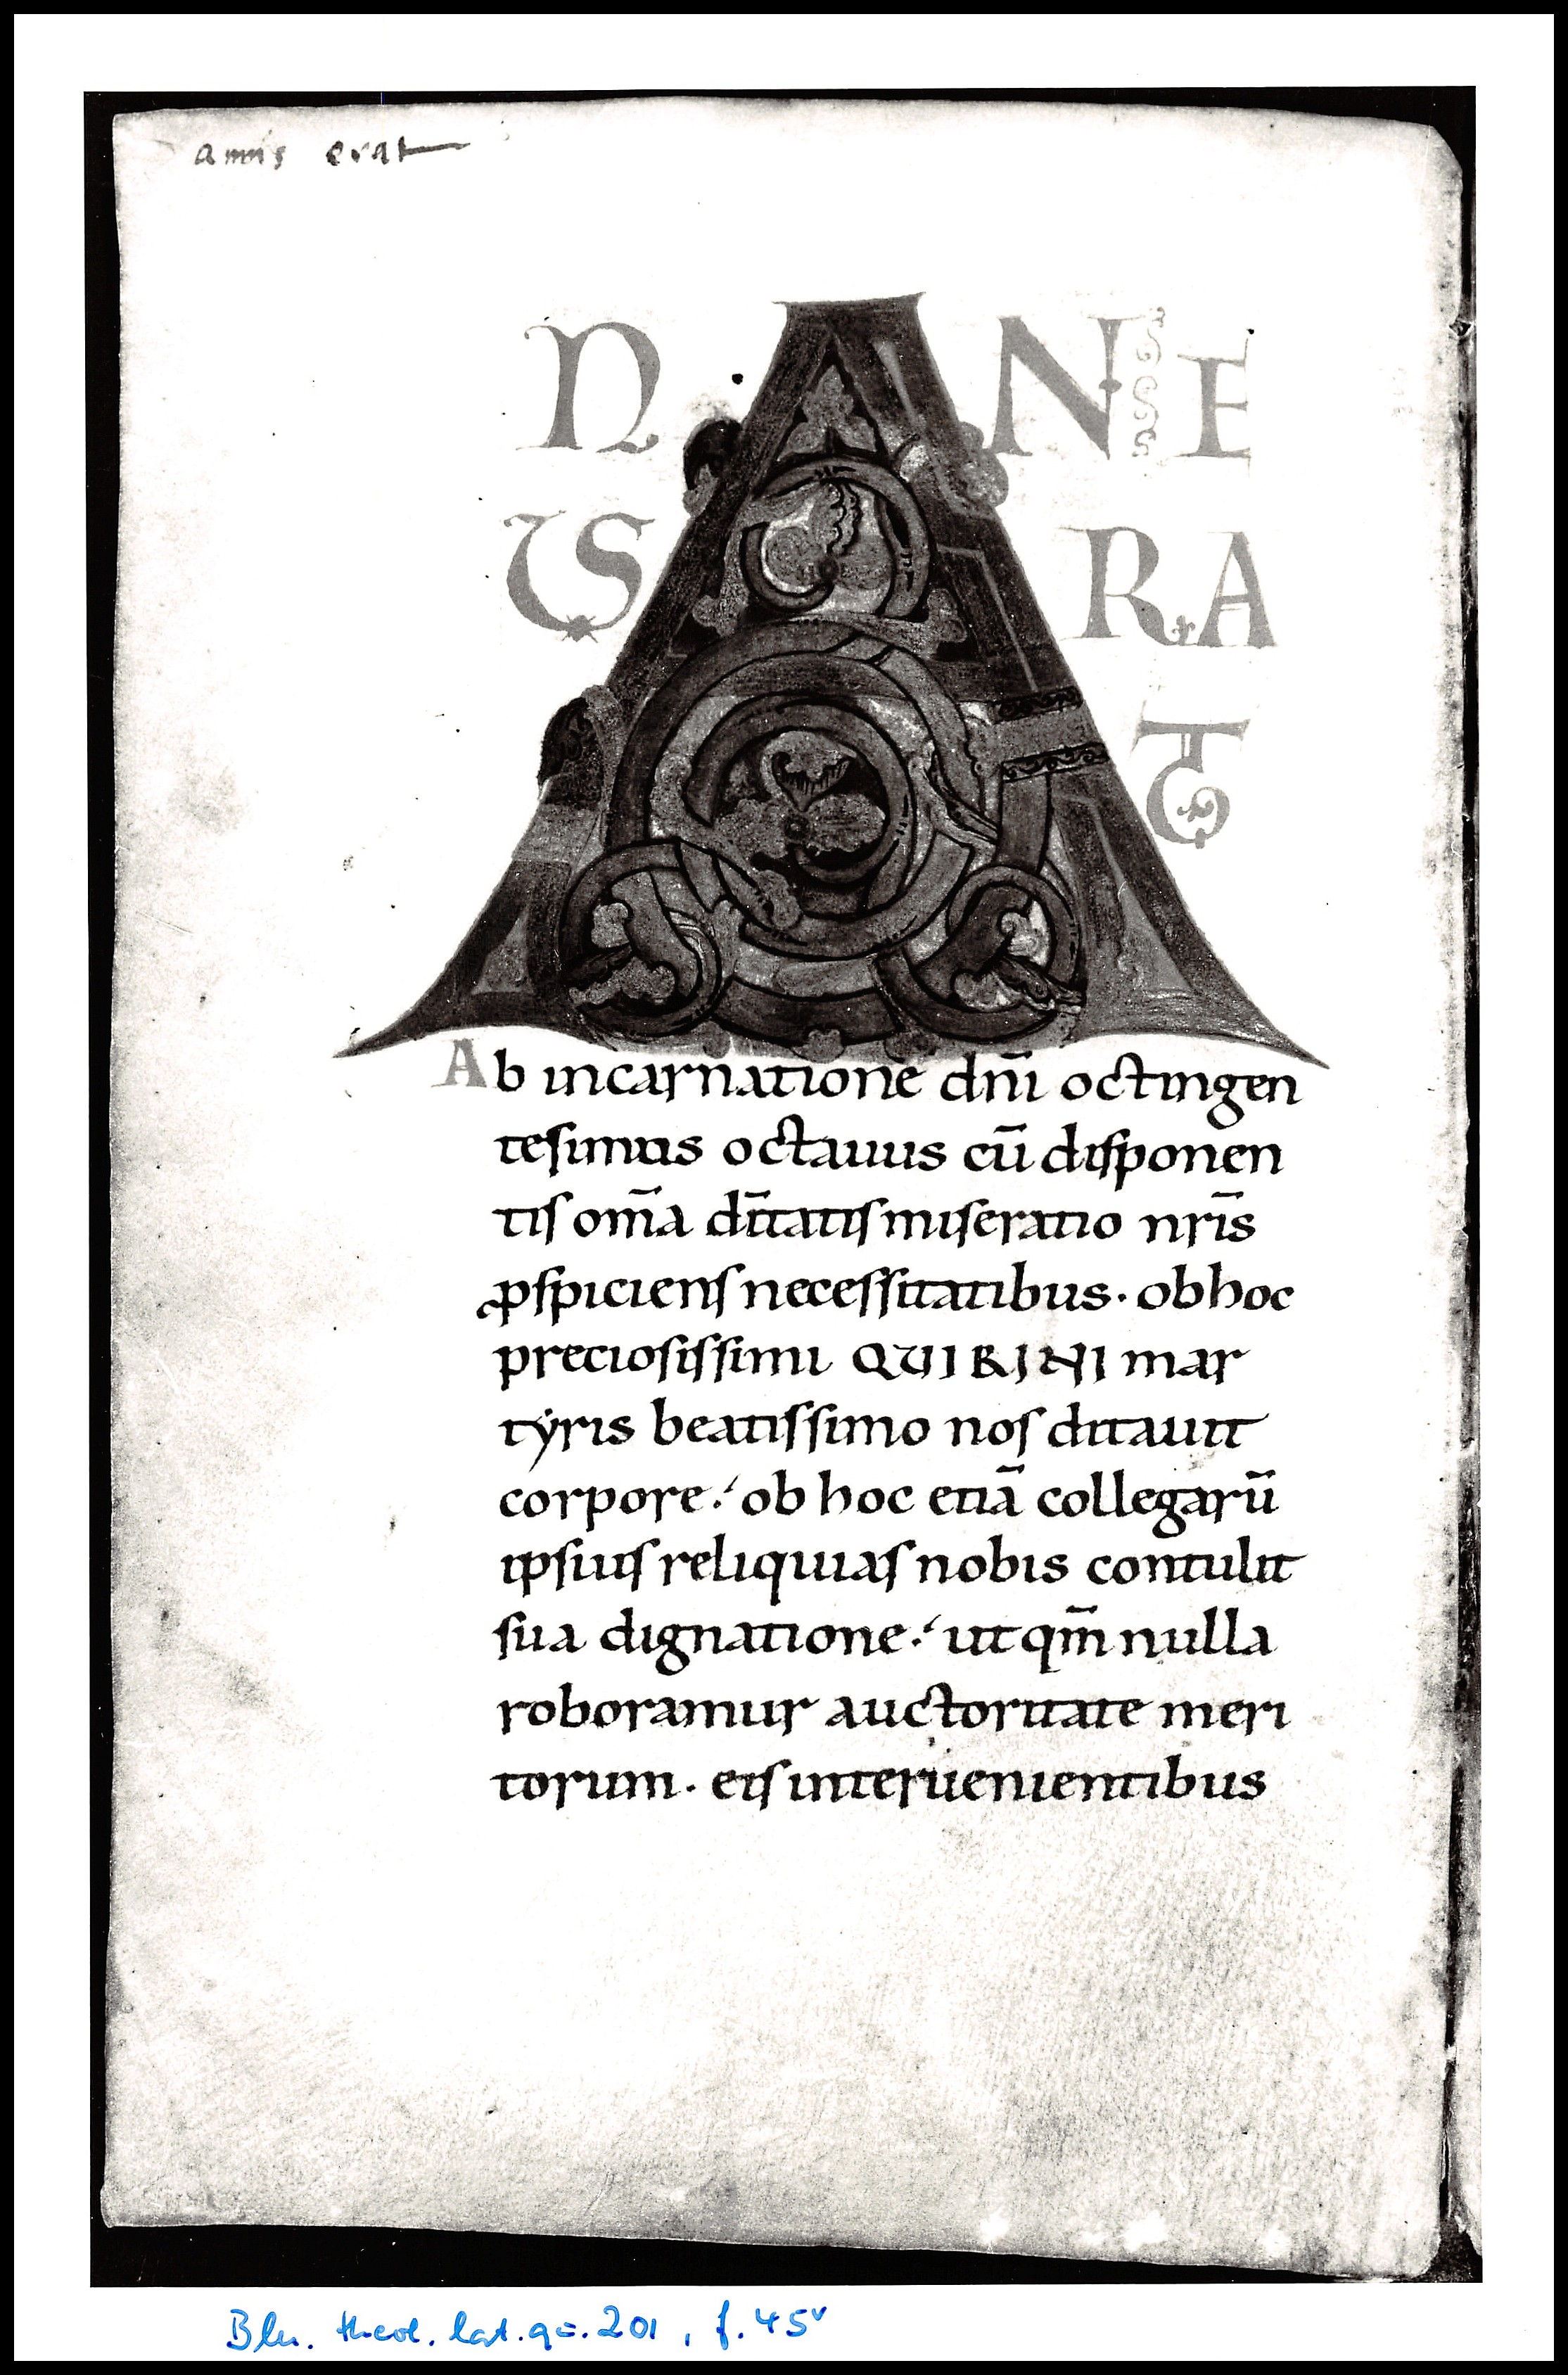 amis erat
A N N E
US R A
T
Ab incarnatione dn̄i octingen
tesimus octauus cū disponen
tis om̄a dītatis miseratio nr̄is
ꝓspiciens necessitatibus · ob hoc
preciosissimi QUIRINI mar
tẏris beatissimo nos ditauit
corpore · ob hoc etiā collegarū
ipsius reliquias nobis contulit
sua dignatione · ut qm̄ nulla
roboramur auctoritate meri
torum · eis interuenientibus
Bln. theol. lat. q°. 201, f. 45ᵛ